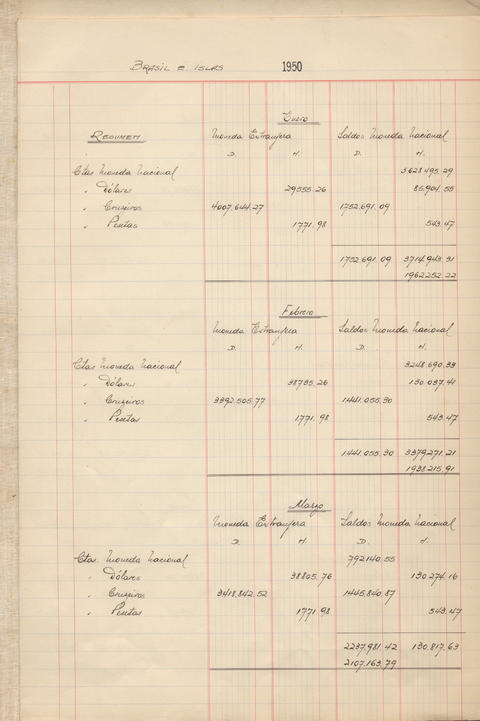 BRASIL E. ISLAS 1950
Enero
RESUMEN Moneda Extranjera Saldos Moneda Nacional
D. H. D. H.
Ctas Moneda Nacional 3628495.29
" Dólares 29555.26 85,904.55
" Cruzeiros 4007,644.27 1752,691.09
" Pesetas 1771.98 543.47
1752,691.09 3714,943.31
1962252.22
Febrero
Moneda Extranjera Saldos Moneda Nacional
D. H. D. H.
Ctas Moneda Nacional 3248,690.33
" Dólares 38735.26 130,037.41
" Cruzeiros 3392,505.77 1441,055.30
" Pesetas 1771.98 543.47
1441,055.30 3379,271.21
1938,215.91
Marzo
Moneda Extranjera Saldos Moneda Nacional
D. H. D. H.
Ctas Moneda Nacional 792,140.55
" Dólares 38805.76 130,274.16
" Cruzeiros 3418,842.52 1445,840.87
" Pesetas 1771.98 543.47
2237,981.42 130,817.63
2107,163.79